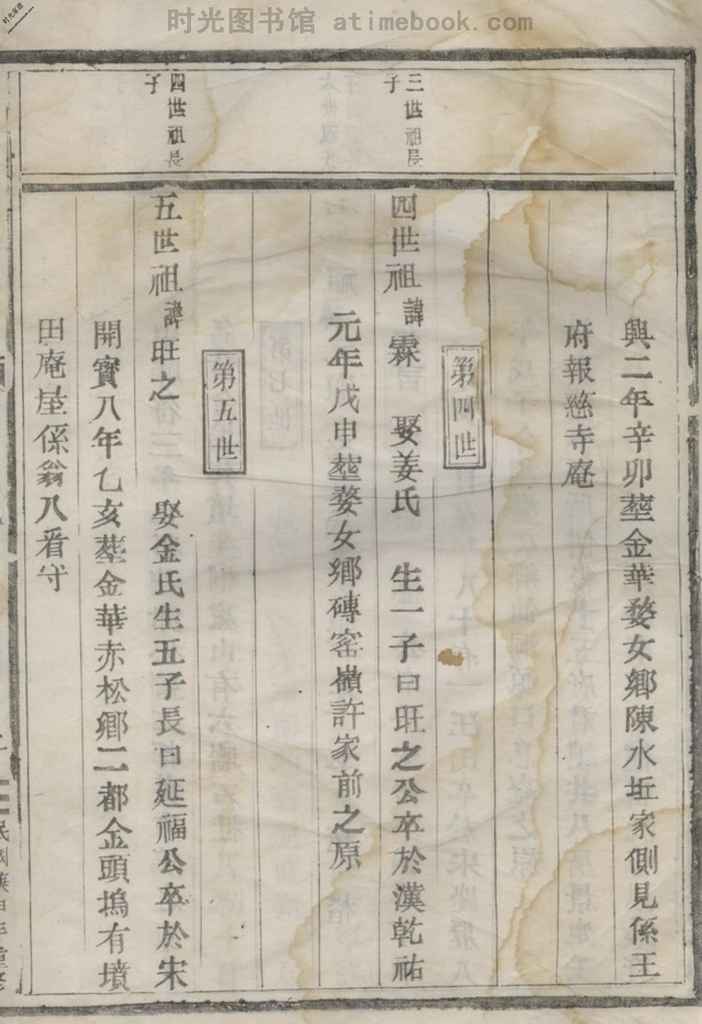 时光图书馆 atimebook.com
興二年辛卯塟金華婺女鄉陳水坵家側見係王
府報慈寺庵
第四世
三世祖長
子
四世祖諱霖 娶姜氏 生一子曰旺之公卒於漢乾祐
元年戊申塟婺女鄉磚窑嶺許家前之原
第五世
四世祖長
子
五世祖諱旺之 娶金氏生五子長曰延福公卒於宋
開寳八年乙亥塟金華赤松鄉二都金頭塢有墳
田庵屋係翁八看守